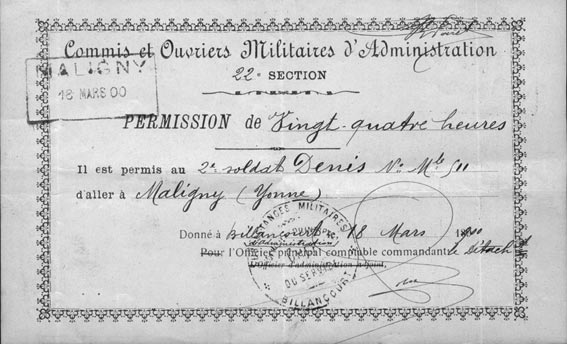 Commis et Ouvriers Militaires d'Administration
22e SECTION
MALIGNY
18 MARS 00
PERMISSION de Vingt-quatre heures
Il est permis au 2e soldat Denis No Mle 511
d'aller à Maligny (Yonne)
Donné à Billancourt 18 Mars 1900
Pour l'Officier principal comptable commandant le détacht
d'administration
L'Officier d'administration adjoint,
MILITAIRES
DU SERVICE
BILLANCOURT